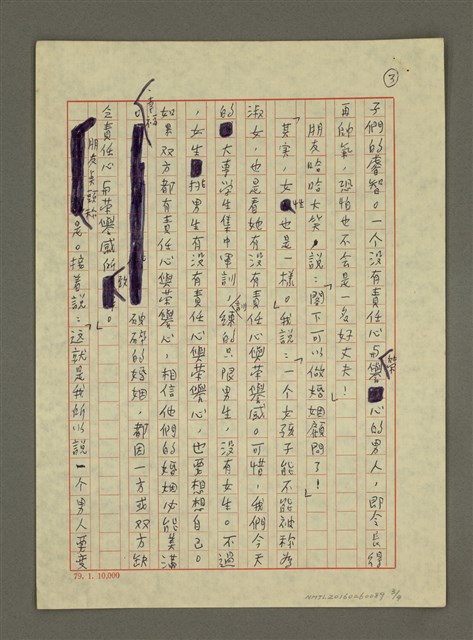 ③
子們的睿智。一个沒有責任心与榮譽心的男人，即令長得
再帥氣，恐怕也不会是一名好丈夫！」
朋友哈哈大笑，說：「閣下可以做婚姻顧問了！」
「其實，女性也是一樣。」我說：「一个女孩子能不能被称為
淑女，也是看她有沒有責任心與荣譽感。可惜，我們今天
的大專学生集中軍訓訓練的只限男生，沒有女生。不過
，女生挑男生有沒有責任心與荣譽心，也要想想自己。
如果双方都有責任心與荣譽心，相信他們的婚姻必能美滿
幸福。破碎的婚姻，都因一方或双方缺
乏責任心与荣譽感的故。」
朋友点頭称是。接着說：「这就是我所以說一个男人要变
79. 1. 10,000
NMTL20160260089 3/9